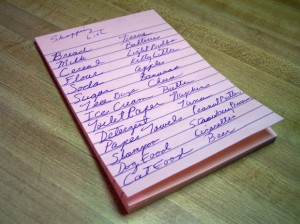 Shopping
List
Bread
Milk Balloons
Cereal Light Bulbs
Flour Kitty Litter
Soda Apples
Sugar Bananas
Ice Cream Butter
Toilet Paper Napkins
Detergent Tuna
Paper Towels Peanut Butter
Shampoo Strawberry
Dog Food Cigarettes
Cat Food Beer